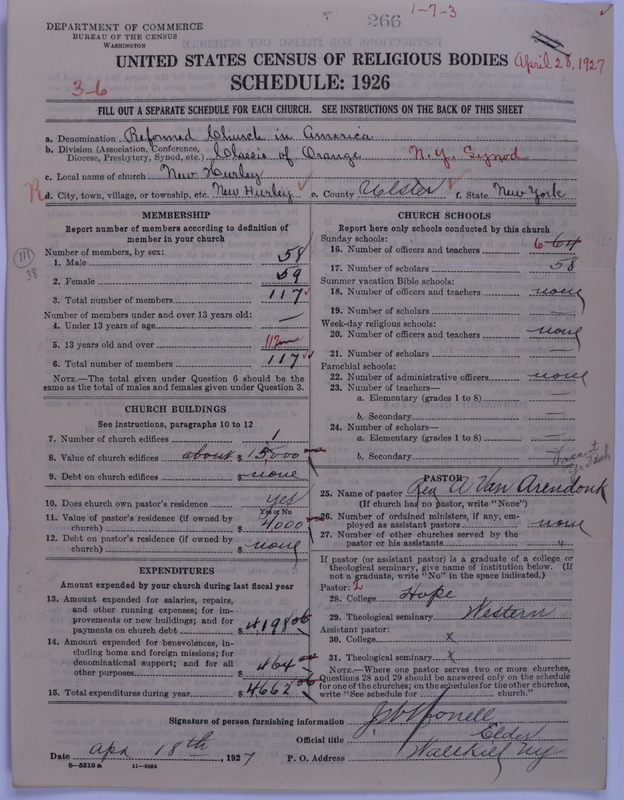 1-7-3
266
DEPARTMENT OF COMMERCE
BUREAU OF THE CENSUS
WASHINGTON
UNITED STATES CENSUS OF RELIGIOUS BODIES
April 28, 1927
SCHEDULE: 1926
3-6
FILL OUT A SEPARATE SCHEDULE FOR EACH CHURCH. SEE INSTRUCTIONS ON THE BACK OF THIS SHEET
a. Denomination Reformed Church in America
b. Division (Association, Conference, Diocese, Presbytery, Synod, etc.) Classis of Orange N.Y. Synod
c. Local name of church New Hurley
R d. City, town, village, or township, etc. New Hurley e. County Ulster f. State New York
MEMBERSHIP
Report number of members according to definition of
member in your church
Number of members, by sex:
1. Male 58
2. Female 59
3. Total number of members 117
Number of members under and over 13 years old:
4. Under 13 years of age —
5. 13 years old and over 117
6. Total number of members 117
NOTE.—The total given under Question 6 should be the
same as the total of males and females given under Question 3.
CHURCH BUILDINGS
See instructions, paragraphs 10 to 12
7. Number of church edifices 1
8. Value of church edifices about $ 15000
9. Debt on church edifices $ none
10. Does church own pastor's residence yes
Yes or No
11. Value of pastor's residence (if owned by
church) $ 4000
12. Debt on pastor's residence (if owned by
church) $ none
EXPENDITURES
Amount expended by your church during last fiscal year
13. Amount expended for salaries, repairs,
and other running expenses; for im-
provements or new buildings; and for
payments on church debt $ 4198 06
14. Amount expended for benevolences, in-
cluding home and foreign missions; for
denominational support; and for all
other purposes $ 464 00
15. Total expenditures during year $ 4662 06
CHURCH SCHOOLS
Report here only schools conducted by this church
Sunday schools:
16. Number of officers and teachers 6 64
17. Number of scholars 58
Summer vacation Bible schools:
18. Number of officers and teachers none
19. Number of scholars —
Week-day religious schools:
20. Number of officers and teachers none
21. Number of scholars —
Parochial schools:
22. Number of administrative officers none
23. Number of teachers—
a. Elementary (grades 1 to 8) —
b. Secondary —
24. Number of scholars—
a. Elementary (grades 1 to 8) —
b. Secondary
PASTOR
25. Name of pastor Rev A Van Arendonk
(If church has no pastor, write "None")
26. Number of ordained ministers, if any, em-
ployed as assistant pastors none
27. Number of other churches served by the
pastor or his assistants "
If pastor (or assistant pastor) is a graduate of a college or
theological seminary, give name of institution below. (If
not a graduate, write "No" in the space indicated.)
Pastor: 2
28. College Hope
29. Theological seminary Western
Assistant pastor:
30. College x
31. Theological seminary x
NOTE.—Where one pastor serves two or more churches,
Questions 28 and 29 should be answered only on the schedule
for one of the churches; on the schedules for the other churches,
write "See schedule for church."
Signature of person furnishing information
Official title Elder
Date Apr 18th, 1927 P. O. Address Wallkill NY
8-5518a 11-9084